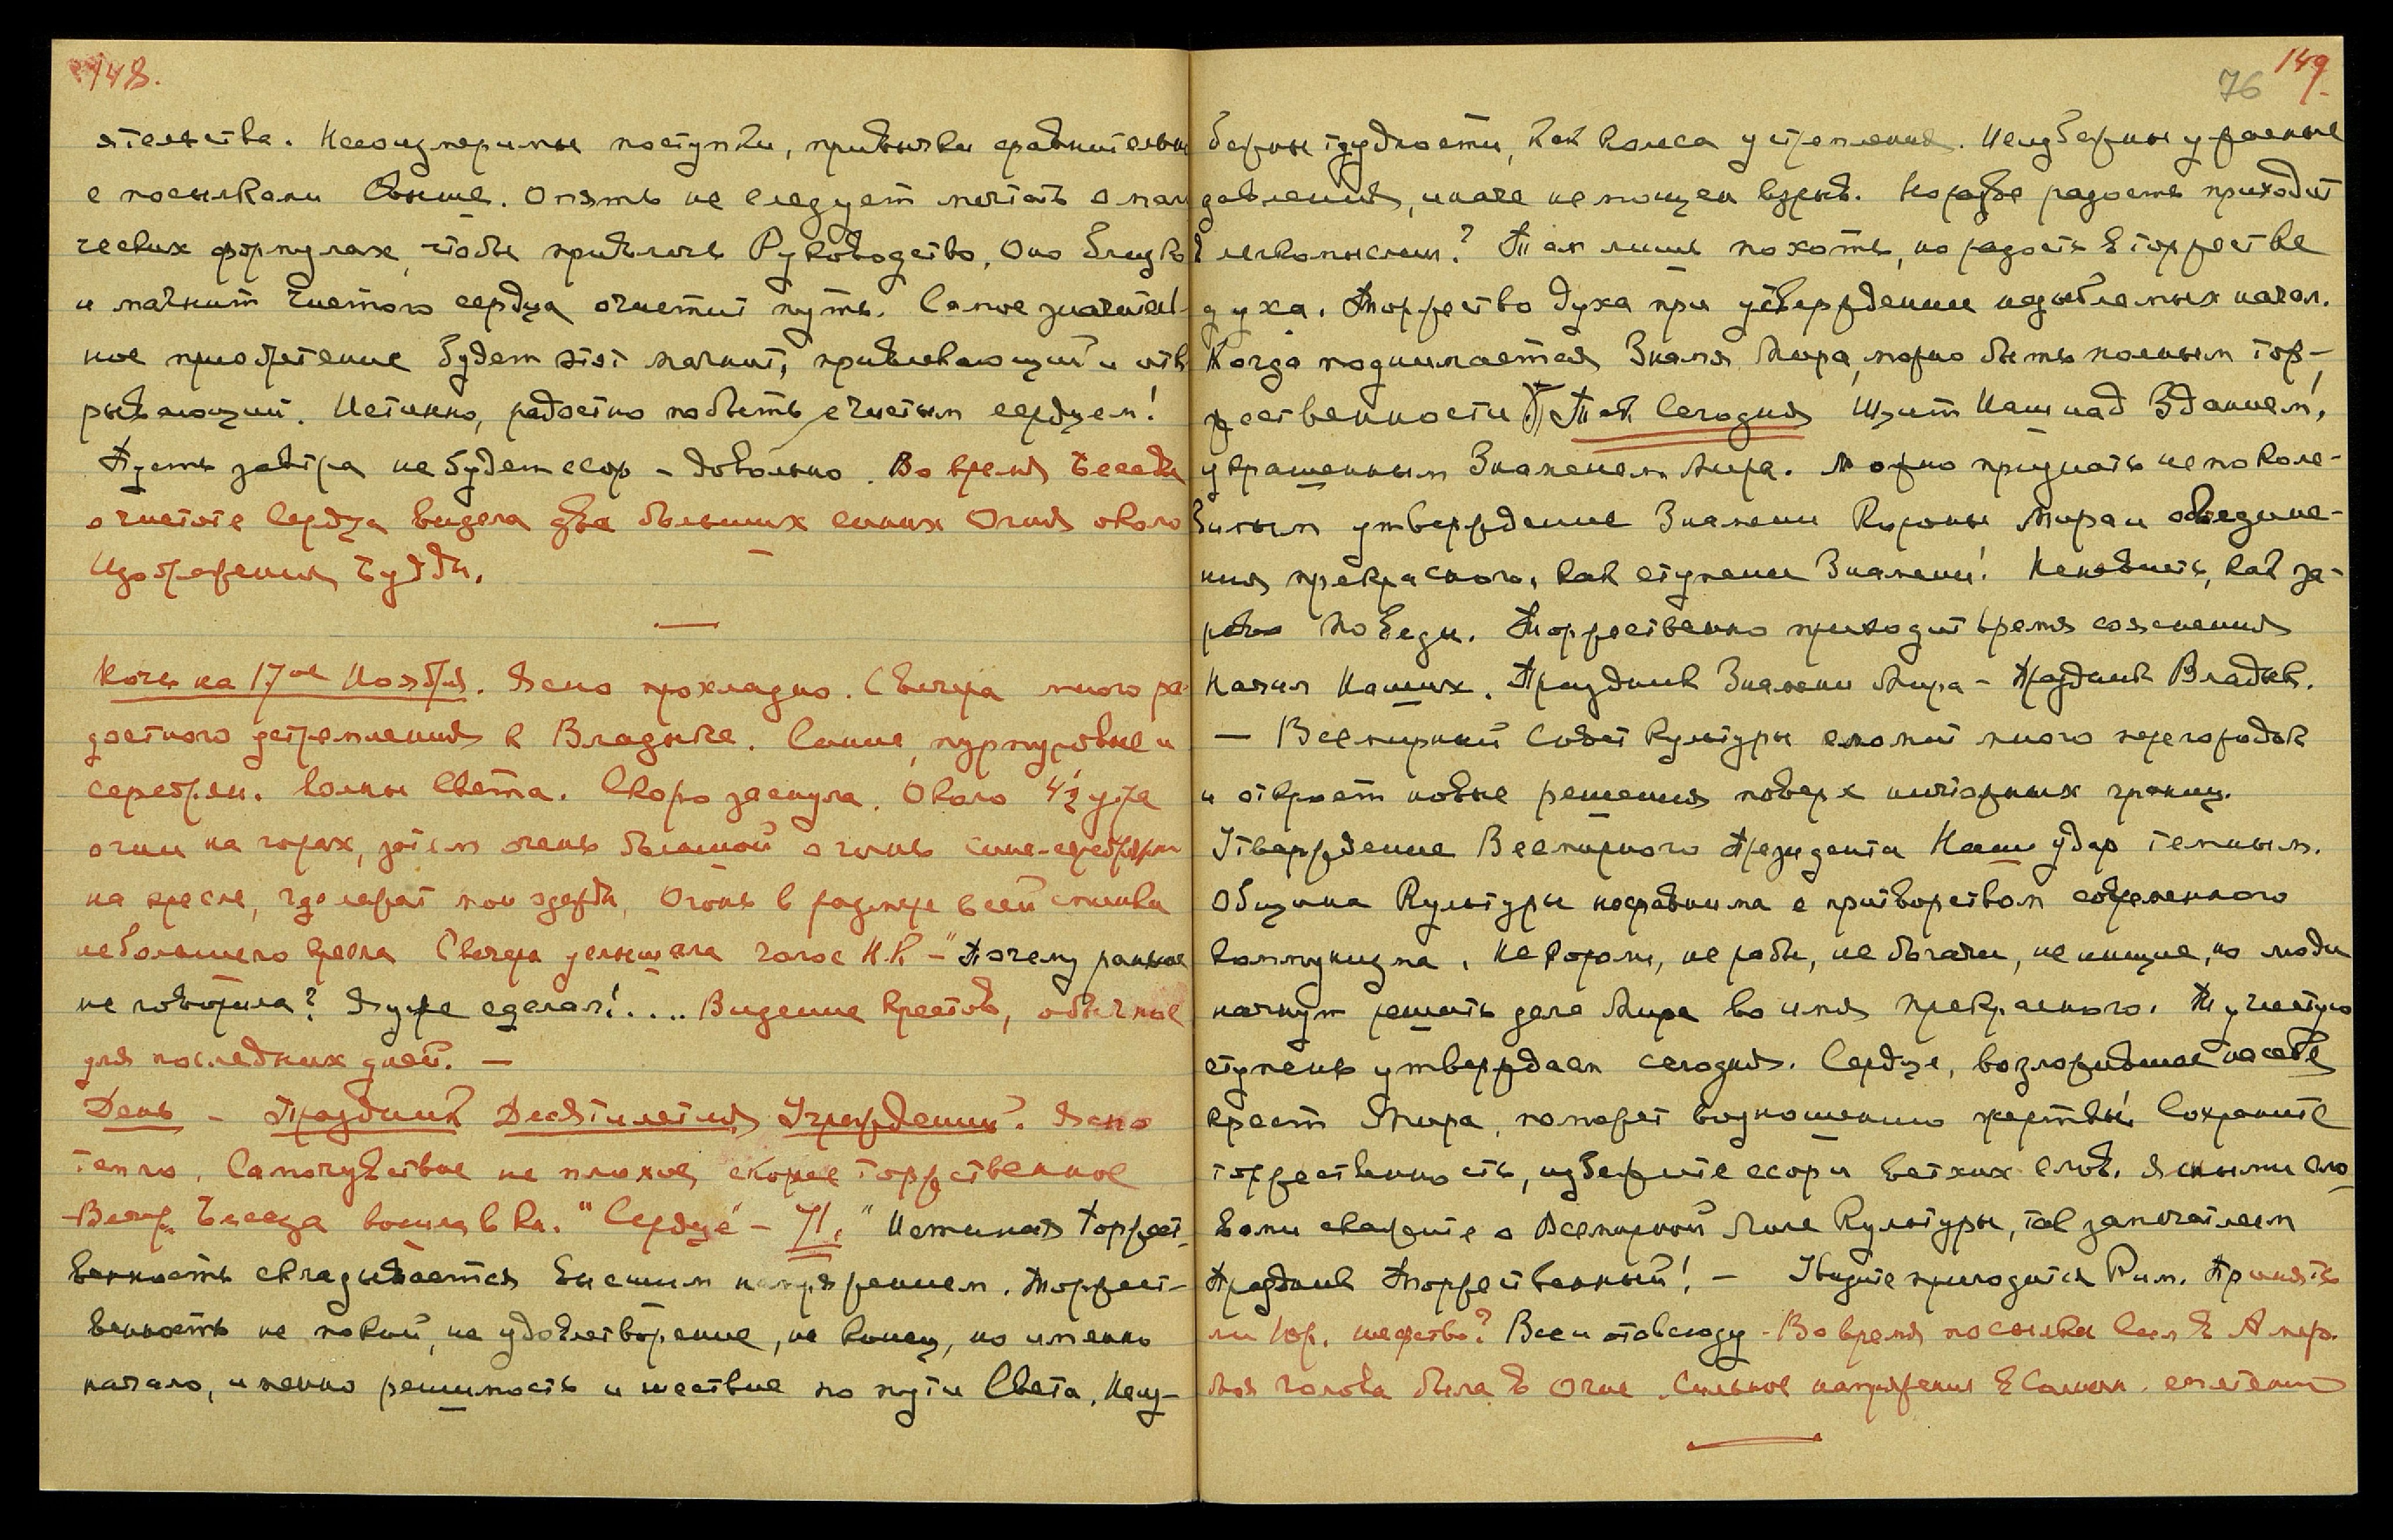 148.
ятельства. Несоизмеримы поступки, привычки сравнительны
с посылками свыше. Опять не следует мечтать о маги
ческих формулах, чтобы привлечь Руководство, Оно близко
и магнит чистого сердца очистит путь. Самое значитель-
ное приобретение будет этот магнит, привлекающий и отк
рывающий. Истинно, радостно побыть с чистым сердцем!
Пусть завтра не будет ссор – довольно. Во время Беседы
о чистоте Сердца видела два больших синих Огня около
Изображения Будды.
Ночь на 17ое Ноября. Ясно прохладно. С вечера много ра-
достного устремления к Владыке. Синие, пурпуровые и
серебрян. волны Света. Скоро заснула. Около 4½ утра
огни на горах, затем очень большой огонь сине-серебрян
на кресле, где лежат мои одежды, Огонь в размере всей спинки
небольшого кресла Сверху услышала голос Н.К – "Почему раньше
не говорила? Я уже сделал!.... Видение крестов, обычное
для последних дней. –
День – Праздник Десятилетия Учреждений. Ясно
тепло. Самочувствие не плохое, скорее торжественное
– Вечер. Беседа вошла в кн. "Сердце" – 71. "Истинная Торжест-
венность складывается высшим напряжением. Торжест-
венность не покой, не удовлетворение, не конец, но именно
начало, именно решимость и шествие по пути Света. Неиз-
149.
76
бежны трудности, как колеса устремления. Неизбежны ужасные
давления, иначе не мощен взрыв. Но разве радость приходит
в легкомыслии? Там лишь похоть, но радость в торжестве
духа. Торжество духа при утверждении незыблемых начал.
Когда поднимается Знамя Мира, можно быть полным тор-
жественности Так Сегодня Щит Наш над Зданием,
украшенным Знаменем Мира. Можно признать непоколе-
бимым утверждение Знамени Короны Мира и объедине-
ния прекрасного, как ступени Знамени! Ненависть, как за-
рево победы. Торжественно приходит время сознания
Начал Наших. Праздник Знамени Мира – Праздник Владык.
– Всемирный Совет Культуры сломит много перегородок
и откроет новые решения поверх ничтожных границ.
Утверждение Всемирного Президента Наш удар темным.
Община Культуры несравнима с притворством современного
коммунизма. Не короли, не рабы, не богачи, не нищие, но люди
начнут решать дела Мира во имя прекрасного. Ту чистую
ступень утверждаем сегодня. Сердце, возложившее на себя
крест Мира, поможет возношению жертвы! Сохраните
торжественность, избежите ссор и ветхих слов. Ясными сло
вами скажите о Всемирной Лиге Культуры, так запечатлеем
Праздник Торжественный! – Увидите пригодится Рим. Принять
ли Юр. шефство? Все и отовсюду – Во время посылки Сил в Амер.
моя голова была в Огне. Сильное напряжение в Солнечн. сплетении